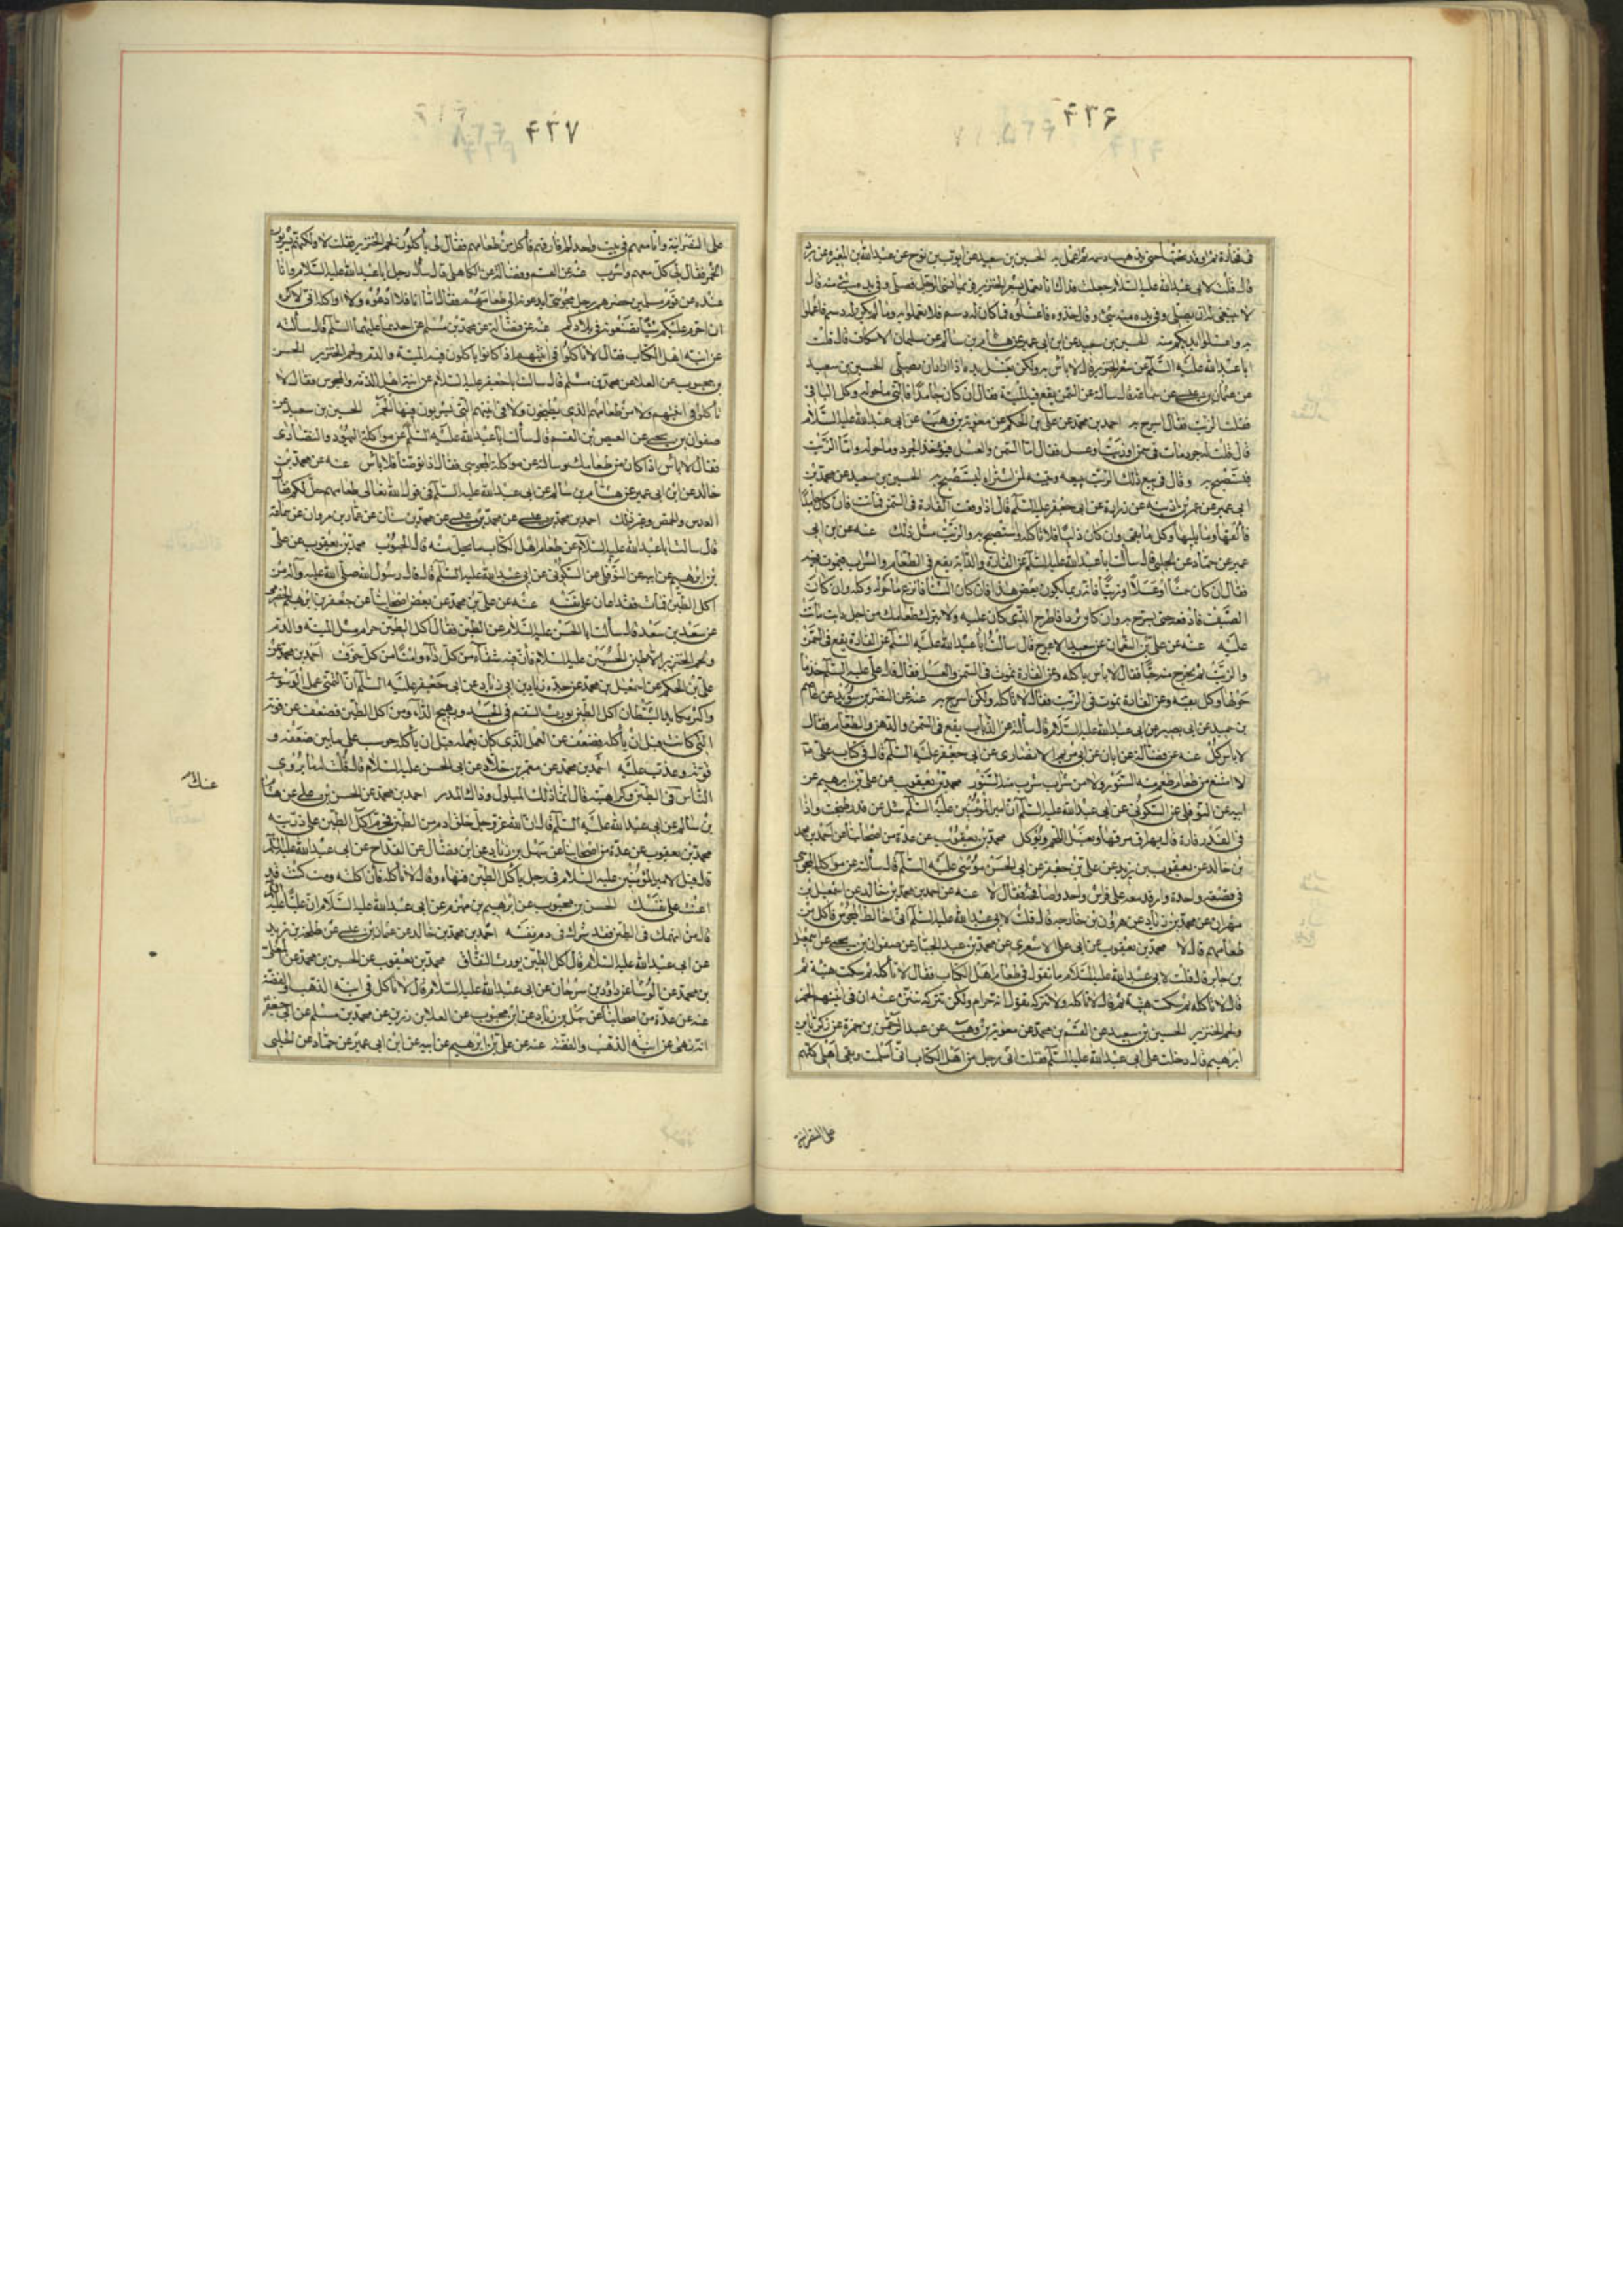 ۴۳۶
في فخارة ثم اوقد تحتها حتى يذهب دسمه ثم اعمل به الحسين بن سعيد عن ايوب بن نوح عن عبد الله بن المغيرة عن برد
قال قلت لابي عبد الله عليه السلام جعلت فداك انا نعمل بشعر الخنزير فربما نسي الرجل فصلى وفي يده شيء منه قال
لا ينبغي له ان يصلي وفي يده منه شيء وقال خذوه فاغسلوه فما كان له دسم فلا تعملوا به وما لم يكن له دسم فاعملوا
به واغسلوا ايديكم منه الحسين بن سعيد عن ابن ابي عمير عن هشام بن سالم عن سليمان الاسكاف قال سألت
ابا عبد الله عليه السلم عن شعر الخنزير قال لا باس به ولكن يغسل يده اذا اراد ان يصلي الحسين بن سعيد
عن عثمان بن عيسى عن سماعة قال سألته عن السمن يقع فيه الميتة فقال ان كان جامدا فالق ما حوله وكل الباقي
فقلت الزيت فقال اسرج به احمد بن محمد عن علي بن الحكم عن معوية بن وهب عن ابي عبد الله عليه السلام
قال قلت له جرذ مات في سمن او زيت او عسل فقال اما السمن والعسل فيؤخذ الجرذ وما حوله واما الزيت
فيستصبح به وقال في بيع ذلك الزيت يبيعه ويبينه لمن اشتراه ليستصبح به الحسين بن سعيد عن محمد بن
ابي عمير عن عمر بن اذينة عن زرارة عن ابي جعفر عليه السلم قال اذا وقعت الفارة في السمن فماتت فان كان جامدا
فالقها وما يليها وكل ما بقي وان كان ذائبا فلا تاكله واستصبح به والزيت مثل ذلك عنه عن ابن ابي
عمير عن حماد عن الحلبي قال سألت ابا عبد الله عليه السلم عن الفارة والدابة يقع في الطعام والشراب فيموت فيه
فقال ان كان سمنا او عسلا او زيتا فانه ربما يكون بعض هذا فان كان الشتاء فانزع ما حوله وكله وان كان
الصيف فادفعه حتى يسرج به وان كان ثردا فاطرح الذي كان عليه ولا تترك طعامك من اجل دابة ماتت
عليه عنه عن علي بن النعمان عن سعيد الاعرج قال سألت ابا عبد الله عليه السلم عن الفارة يقع في السمن
والزيت ثم يخرج منه حيا فقال لا باس باكله وعن الفارة تموت في السمن والعسل فقال قال علي عليه السلم خذ ما
حولها وكل بقيته وعن الفارة تموت في الزيت فقال لا تاكله ولكن اسرج به عنه عن النضر بن سويد عن عاصم
بن حميد عن ابي بصير عن ابي عبد الله عليه السلام قال سألته عن الذباب يقع في السمن والدهن والطعام فقال
لا باس كل عنه عن فضالة عن ابان عن ابي مريم الانصاري عن ابي جعفر عليه السلم قال في كتاب علي ع
لا امتنع من طعام طعم منه السنور ولا من شراب شرب منه السنور محمد بن يعقوب عن علي بن ابراهيم عن
ابيه عن النوفلي عن السكوني عن ابي عبد الله عليه السلم ان امير المؤمنين عليه السلم سئل عن قدر طبخت واذا
في القدر فارة قال يهراق مرقها ويغسل اللحم ويؤكل محمد بن يعقوب عن عدة من اصحابنا عن احمد بن محمد
بن خالد عن يعقوب بن يزيد عن علي بن جعفر عن ابي الحسن موسى عليه السلم قال سألته عن مواكلة المجوسي
في قصعة واحدة وارقد معه على فراش واحد واصافحه فقال لا عنه عن احمد بن محمد بن خالد عن اسمعيل بن
مهران عن محمد بن زياد عن هرون بن خارجة قال قلت لابي عبد الله عليه السلم اني اخالط المجوس فاكل من
طعامهم قال لا محمد بن يعقوب عن ابي علي الاشعري عن محمد بن عبد الجبار عن صفوان بن يحيى عن اسمعيل
بن جابر قال قلت لابي عبد الله عليه السلام ما تقول في طعام اهل الكتاب فقال لا تأكله ثم سكت هنيئة ثم
قال لا تاكله ثم سكت هنيئة ثم قال لا تاكله ولا تتركه تقول انه حرام ولكن تتركه تنزه عنه ان في انيتهم الخمر
ولحم الخنزير الحسين بن سعيد عن القسم بن محمد عن معوية بن وهب عن عبد الرحمن بن حمزة عن زكريا بن
ابرهيم قال دخلت على ابي عبد الله عليه السلم فقلت اني رجل من اهل الكتاب اني اسلمت وبقي اهلي كلهم
على النصرانية
۴۳۷
على النصرانية وانا معهم في بيت واحد لم افارقهم فاكل من طعامهم فقال لي يأكلون لحم الخنزير فقلت لا ولكنهم يشربون
الخمر فقال لي كل معهم واشرب عنه عن القسم وفضالة عن الكاهلي قال سأل رجل ابا عبد الله عليه السلام وانا
عنده عن قوم مسلمين حضرهم رجل مجوسي ايدعونه الى طعامهم فقال اما انا فلا ادعوه ولا اواكله اني لاكره
ان احرم عليكم شيئا تصنعونه في بلادكم عنه عن فضالة عن محمد بن مسلم عن احدهما عليهما السلم قال سألته
عن انية اهل الكتاب فقال لا تاكلوا في انيتهم اذا كانوا ياكلون فيه الميتة والدم ولحم الخنزير الحسن
بن محبوب عن العلا عن محمد بن مسلم قال سالت ابا جعفر عليه السلام عن انية اهل الذمة والمجوس فقال لا
تاكلوا في انيتهم ولا من طعامهم الذي يطبخون ولا في انيتهم التي يشربون فيها الخمر الحسين بن سعيد عن
صفوان بن يحيى عن العيص بن القسم قال سألت ابا عبد الله عليه السلم عن مواكلة اليهود والنصارى
فقال لا باس اذا كان من طعامك وسالته عن مواكلة المجوسي فقال اذا توضأ فلا باس عنه عن محمد بن
خالد عن ابن ابي عمير عن هشام بن سالم عن ابي عبد الله عليه السلم في قول الله تعالى طعامهم حل لكم قال
العدس والحمص وغير ذلك احمد بن محمد بن عيسى عن محمد بن عيسى عن محمد بن سنان عن عمار بن مروان عن سماعة
قال سالت ابا عبد الله عليه السلام عن طعام اهل الكتاب ما يحل منه قال الحبوب محمد بن يعقوب عن علي
بن ابرهيم عن ابيه عن النوفلي عن السكوني عن ابي عبد الله عليه السلم قال قال رسول الله صلى الله عليه وآله من
اكل الطين فمات فقد اعان على نفسه عنه عن علي بن محمد عن بعض اصحابنا عن جعفر بن ابرهيم الحضرمي
عن سعد بن سعد قال سألت ابا الحسن عليه السلام عن الطين فقال اكل الطين حرام مثل الميتة والدم
ولحم الخنزير الا طين الحسين عليه السلام فان فيه شفاء من كل داء وامنا من كل خوف احمد بن محمد عن
علي بن الحكم عن اسمعيل بن محمد عن جده زياد بن ابي زياد عن ابي جعفر عليه السلم ان التمني عمل الوسوسة
واكبر مكايد الشيطان اكل الطين يورث السقم في الجسد ويهيج الداء ومن اكل الطين فضعف عن قوته
التي كانت قبل ان يأكله وضعف عن العمل الذي كان يعمله قبل ان يأكله حوسب على ما بين ضعفه و
قوته وعذب عليه احمد بن محمد عن معمر بن خلاد عن ابي الحسن عليه السلام قال قلت له ما يروي
الناس في الطين وكراهيته قال انما ذلك المبلول وذاك المدر احمد بن محمد عن الحسن بن علي عن هشام
بن سالم عن ابي عبد الله عليه السلم قال ان الله عز وجل خلق ادم من الطين فحرم اكل الطين على ذريته
محمد بن يعقوب عن عدة من اصحابنا عن سهل بن زياد عن ابن فضال عن القداح عن ابي عبد الله عليه السلم
قال قيل لامير المؤمنين عليه السلام في رجل يأكل الطين فنهاه وقال لا تأكله فان اكلته ومت كنت قد
اعنت على نفسك الحسن بن محبوب عن ابرهيم بن مهزم عن ابي عبد الله عليه السلام ان عليا عليه السلم
قال من انهمك في الطين فقد شرك في دم نفسه احمد بن محمد بن خالد عن عثمان بن عيسى عن طلحة بن زيد
عن ابي عبد الله عليه السلام قال اكل الطين يورث النفاق محمد بن يعقوب عن الحسين بن محمد عن معلى
بن محمد عن الوشاء عن داود بن سرحان عن ابي عبد الله عليه السلام قال لا تاكل في انية الذهب والفضة
عنه عن عدة من اصحابنا عن سهل بن زياد عن ابن محبوب عن العلا بن رزين عن محمد بن مسلم عن ابي جعفر
انه نهى عن انية الذهب والفضة عنه عن علي بن ابرهيم عن ابيه عن ابن ابي عمير عن حماد عن الحلبي